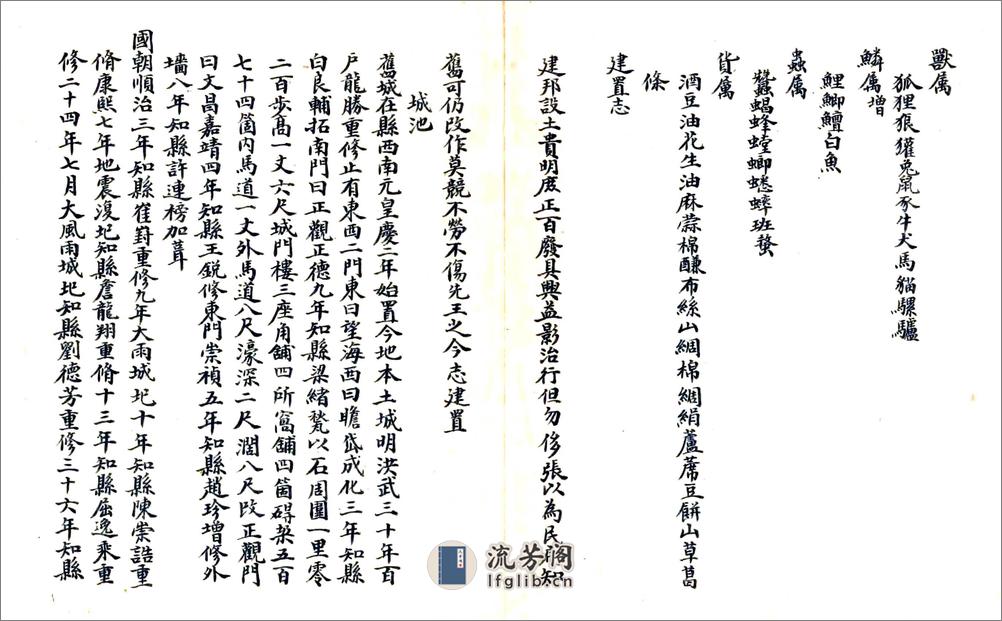 獸属
狐狸狼獾兔鼠豕牛犬馬貓騾驢
鱗属增
鯉鯽鱣白魚
蟲属
蠶蝎蜂螳螂蟋蟀班蝥
貨属
酒豆油花生油麻蒜棉醶布絲山綢棉綢絹蘆蓆豆餅山草葛
條
建置志
建邦設土貴明庶正百廢具興益影治行但勿侈張以為民知
舊可仍改作莫競不勞不傷先王之令志建置
城池
舊城在縣西南元皇慶二年始置今地本土城明洪武三十年百
戶龍勝重修止有東西二門東曰望海西曰瞻岱成化三年知縣
白良輔拓南門曰正觀正德九年知縣梁緒甃以石周圍一里零
二百步高一丈六尺城門樓三座角舖四所窩舖四箇碍架五百
七十四箇內馬道一丈外馬道八尺濠深二尺濶八尺改正觀門
曰文昌嘉靖四年知縣王銳修東門崇禎五年知縣趙珍增修外
墻八年知縣許連榜加葺
國朝順治三年知縣崔葑重修九年大雨城圮十年知縣陳崇誥重
脩康熙七年地震復圮知縣詹龍翔重脩十三年知縣屈逸乘重
修二十四年七月大風雨城圮知縣劉德芳重修三十六年知縣
流芳閣
lfglib.cn